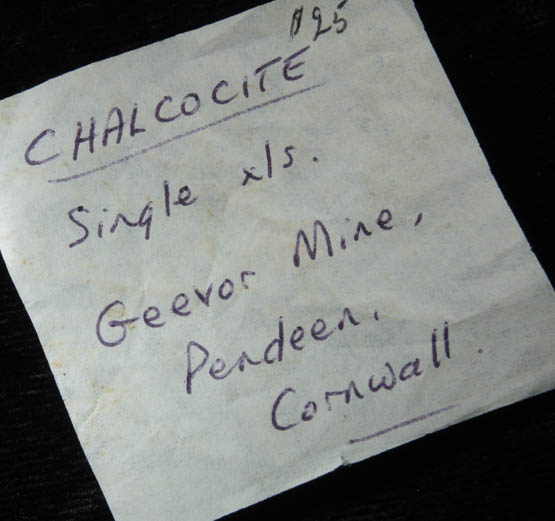 $25
CHALCOCITE
Single xls.
Geevor Mine,
Pendeen,
Cornwall.